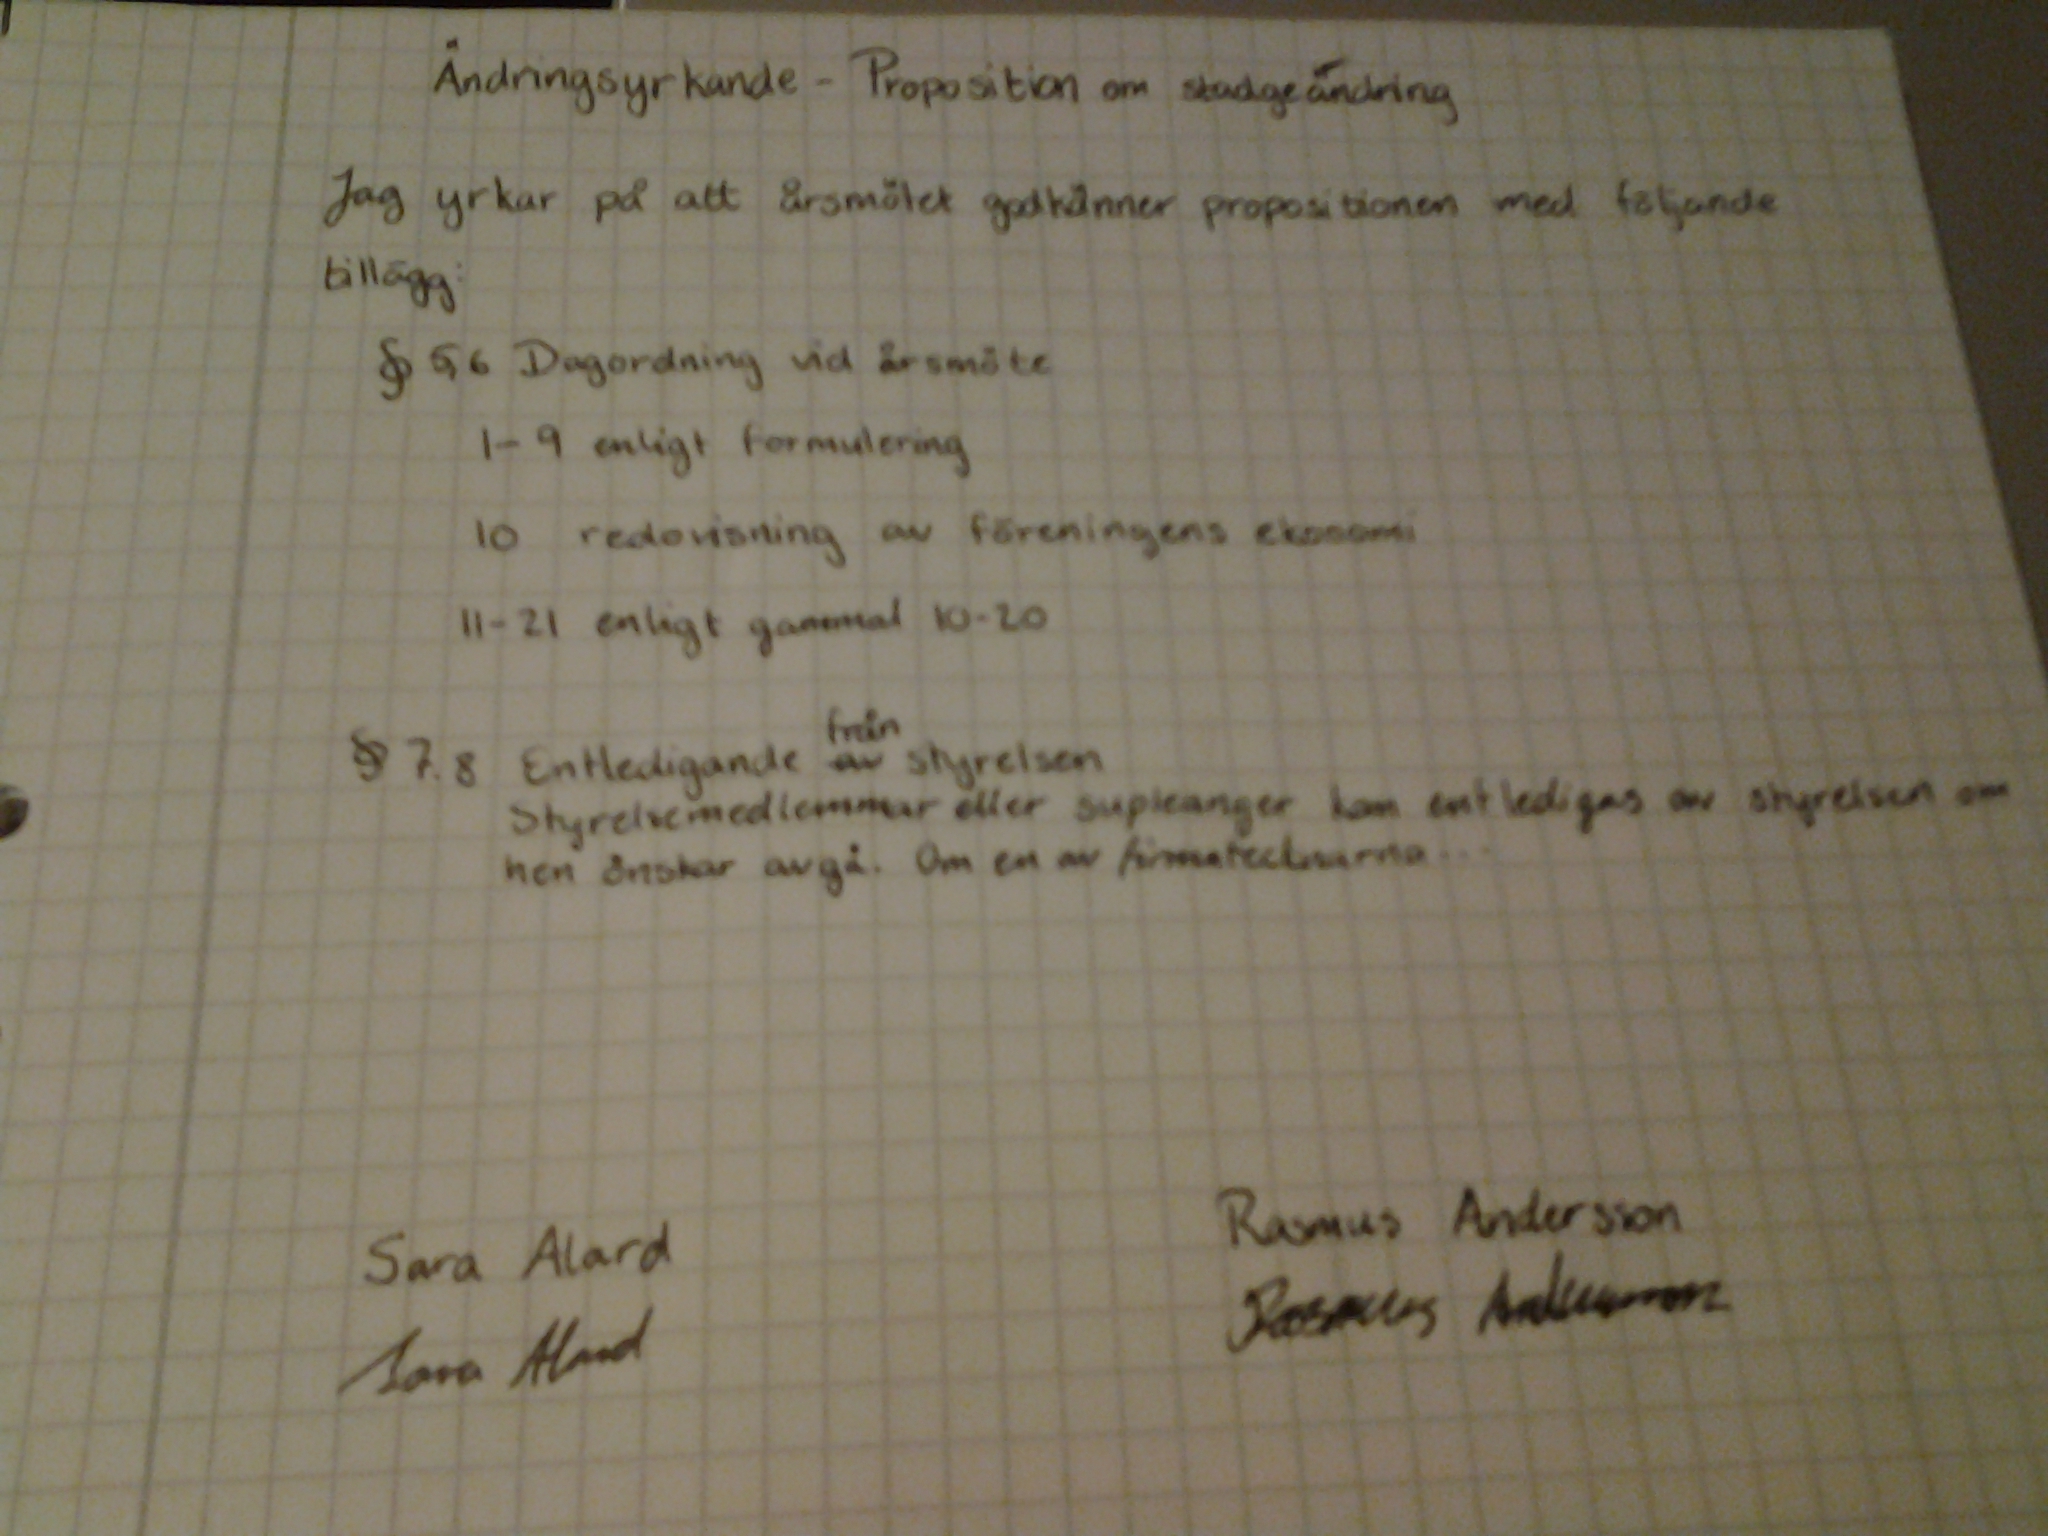 Ändringsyrkande - Proposition om stadgeändring
Jag yrkar på att årsmötet godkänner propositionen med följande
tillägg:
§ 5,6 Dagordning vid årsmöte
1-9 enligt formulering
10 redovisning av föreningens ekonomi
11-21 enligt gammal 10-20
från
§ 7.8 Entledigande av styrelsen
Styrelsemedlemmar eller supleanger kan entledigas av styrelsen om
hen önskar avgå. Om en av firmatecknarna...
Sara Alard
Rasmus Andersson
Sara Alard
Rasmus Andersson